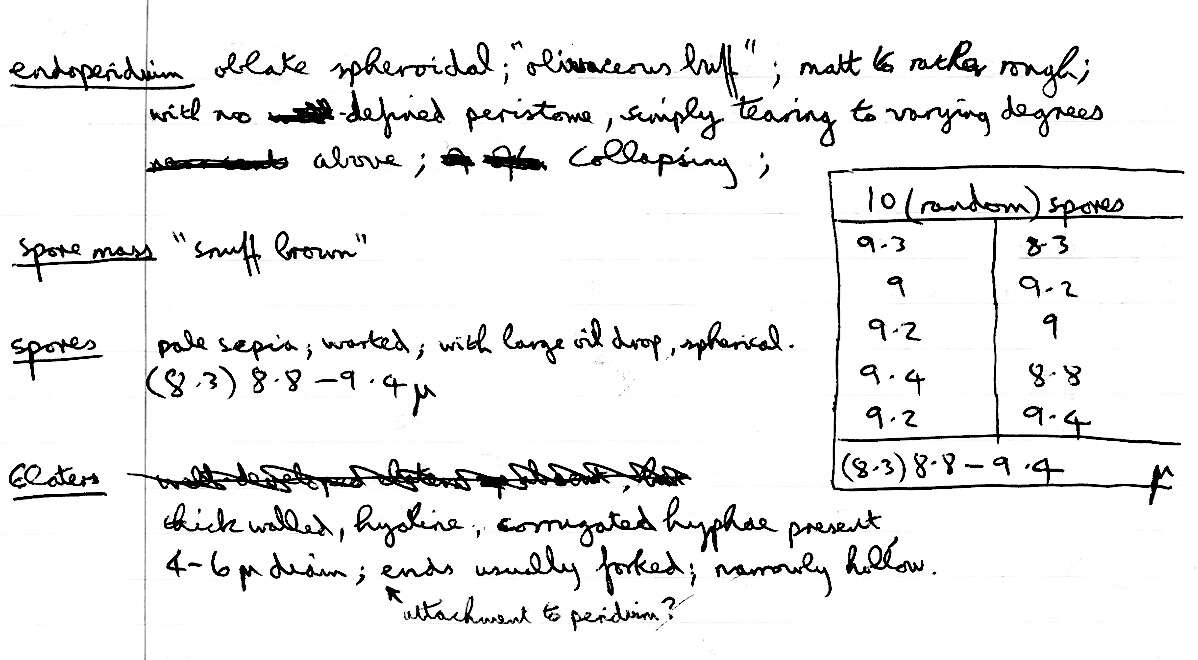 endoperidium oblate spheroidal; "olivaceous buff"; matt to rather rough;
with no -defined peristome, simply tearing to varying degrees
above; collapsing;
10 (random) spores
9.3 8.3
9 9.2
9.2 9
9.4 8.8
9.2 9.4
(8.3) 8.8 – 9.4 µ
spore mass "snuff brown"
spores pale sepia; warted; with large oil drop, spherical.
(8.3) 8.8 – 9.4 µ
Elaters well developed elaters absent, but
thick walled, hyaline, corrugated hyphae present,
4–6 µ diam; ends usually forked; narrowly hollow.
attachment to peridium?